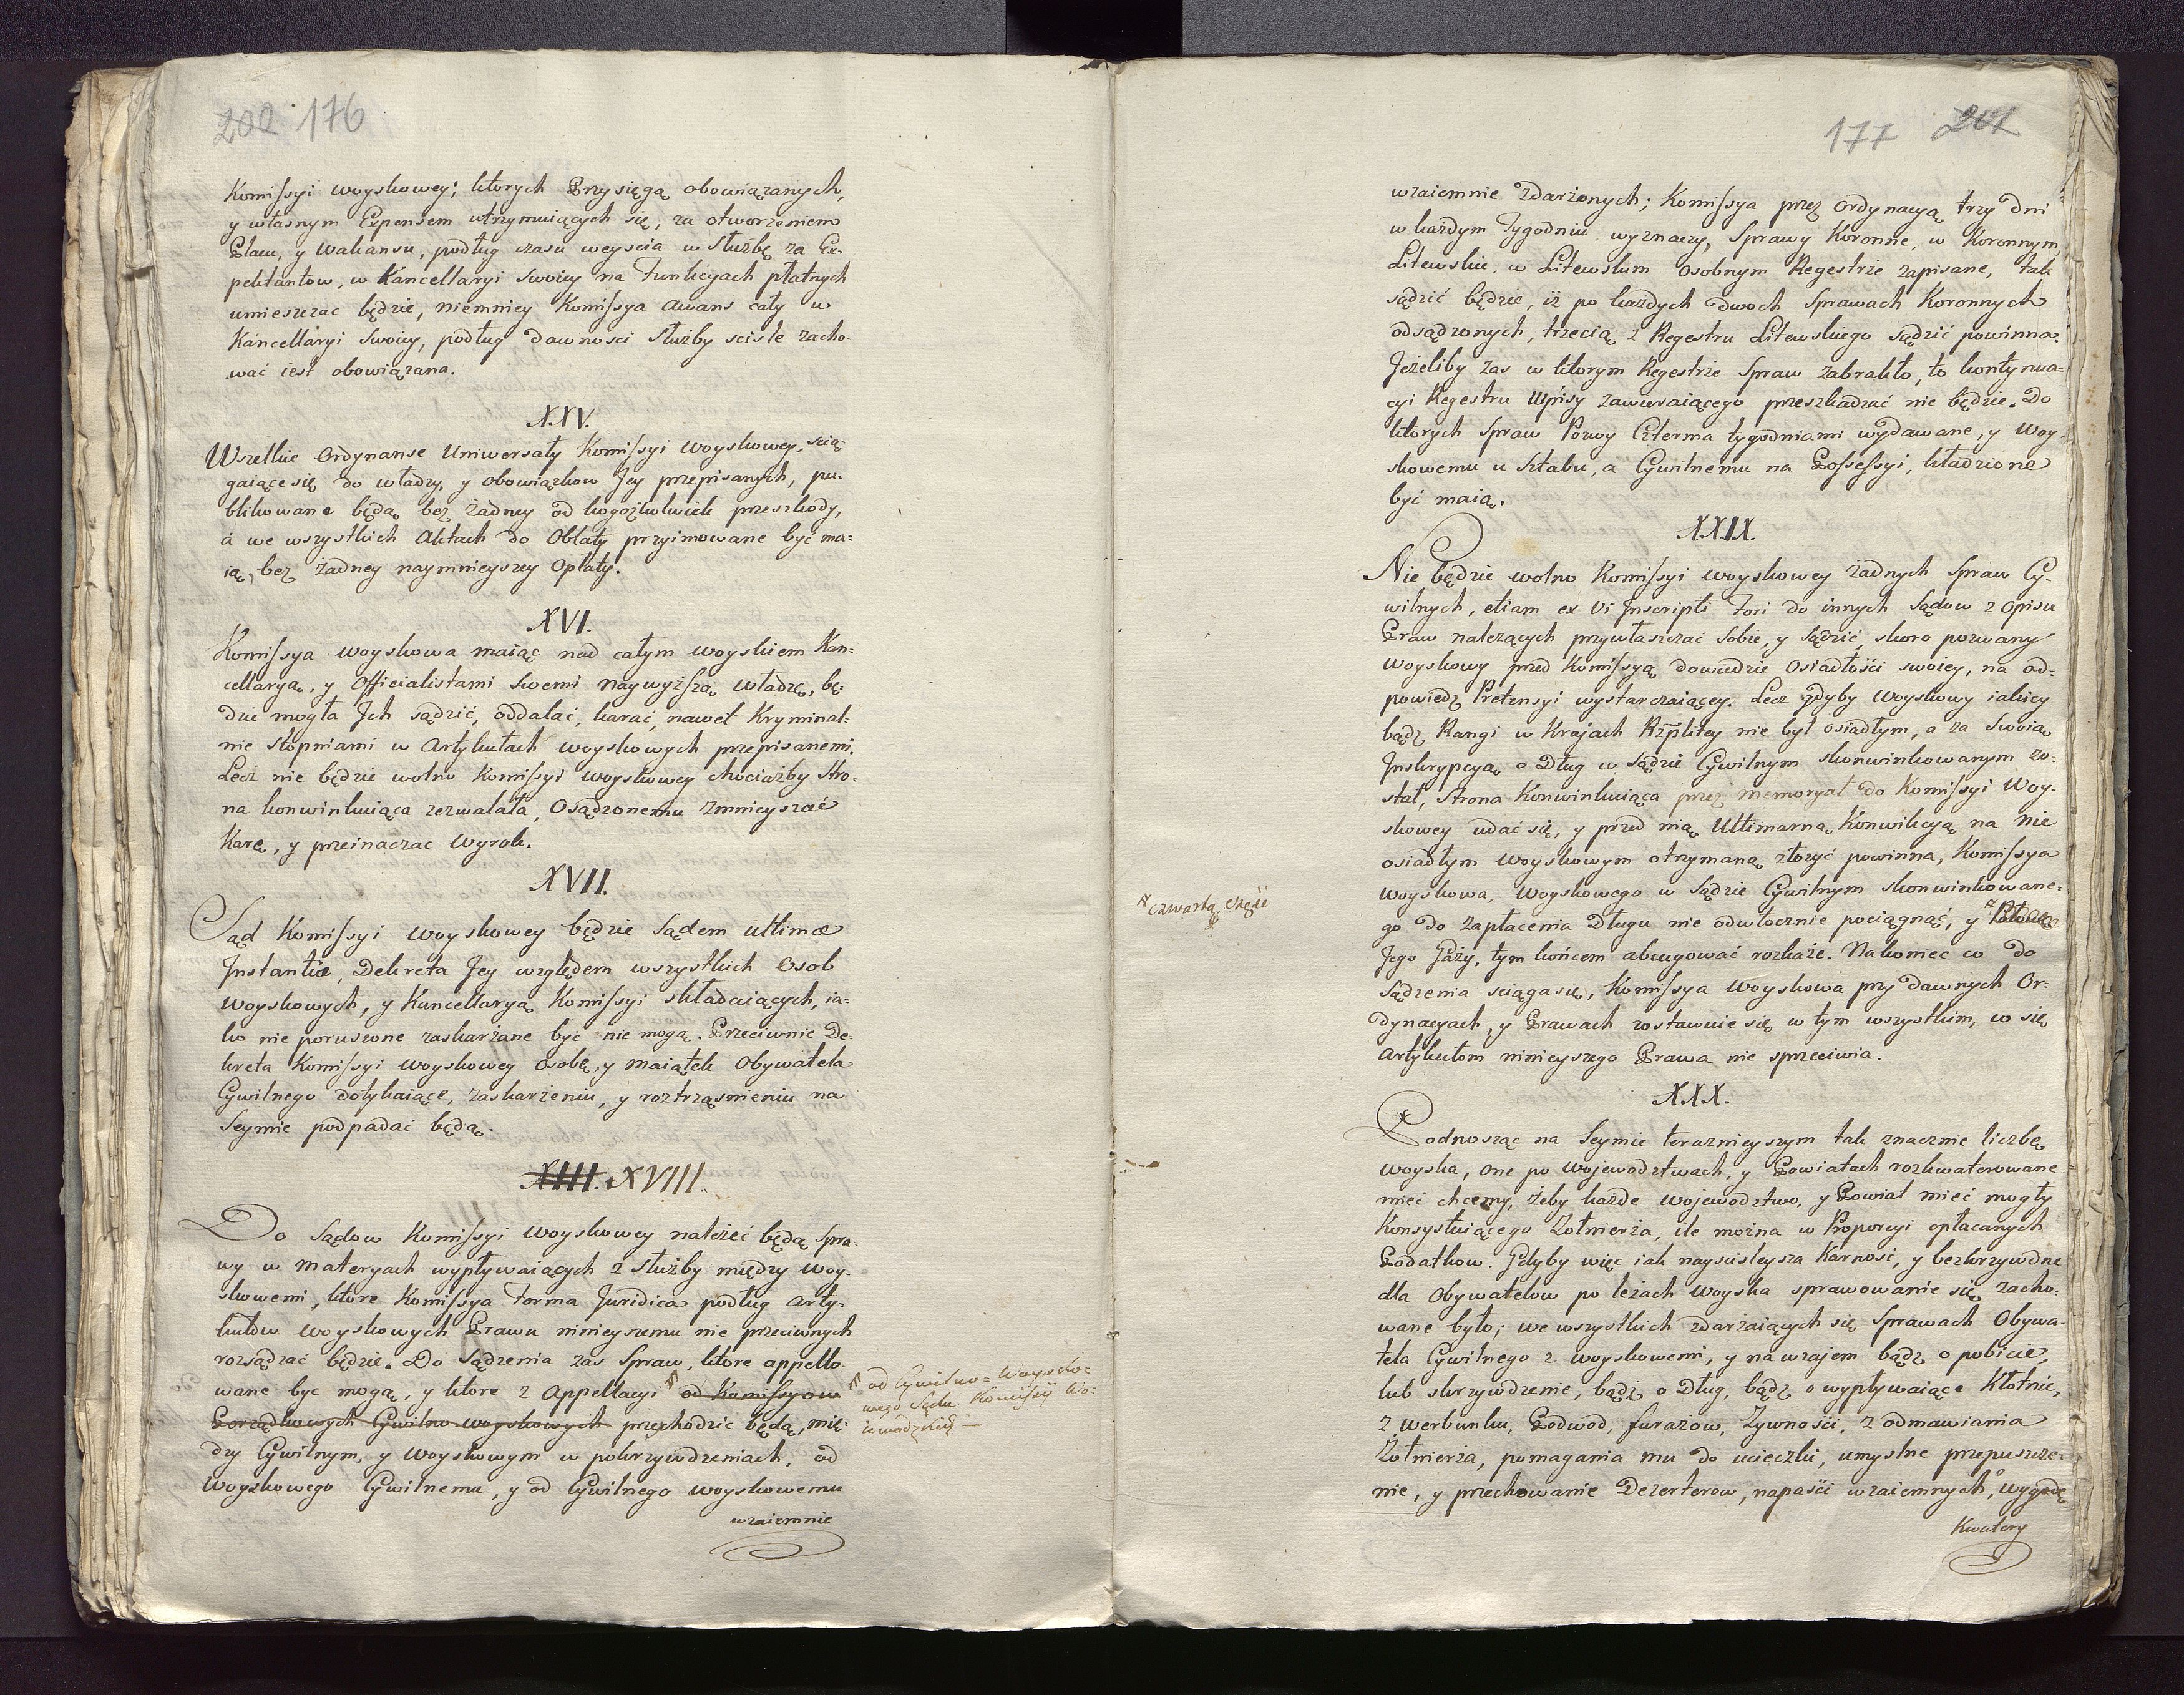 200 176
Komissyi Woyskowey; ktorych Przysięgą obowiązanych,
y własnym Expensem utrzymuiących się, za otworzeniem
Placu, y Wakansu, podług czasu weyscia w Służbę za Ex-
pektantow, w Kancellaryi Swoiey na Funkcyach płatnych
umieszczac będzie, niemniey Komissya Awans cały w
Kancellaryi Swoiey, podług dawnosci Służby scisle zacho-
wać iest obowiązana.
XXV.
Wszelkie Ordynanse Uniwersały Komissyi Woyskowey, scią-
gaiące się do władzy, y obowiązkow Jey przepisanych, pu-
blikowane będą, bez żadney od kogożkolwiek przeszkody,
a we wszystkich Aktach do Oblaty przyimowane być ma=
ią, bez żadney naymnieyszey Opłaty.
XVI.
Komissya Woyskowa maiąc nad całym Woyskiem Kan=
cellaryą, y Officialistami Swemi naywyższą władzę, bę-
dzie mogła Jch sądzić, oddalać, karać, nawet Kryminal-
nie stopniami w Artykułach Woyskowych przepisanemi.
Lecz nie będzie wolno Komissyi Woyskowey chociażby Stro-
na konwinkuiąca zezwalała, Osądzonemu zmnieyszać
Karę, y przeinaczac Wyrok.
XVII.
Sąd Komissyi Woyskowey będzie Sądem ultimæ
Instantiæ, Dekreta Jey względem wszystkich Osob
Woyskowych, y Kancellaryą Komissyi składaiących, ia-
ko nie poruszone zaskarżane być nie mogą. Przeciwnie De-
kreta Komissyi Woyskowey osobę, y maiątek Obywatela
Cywilnego dotykaiące, zaskarżeniu, y roztrząsnieniu na
Seymie podpadać będą.
XIIII. XVIII.
Do Sądow Komissyi Woyskowey należeć będą Spra-
wy w materyach wypływaiących z służby między Woy-
skowemi, ktore Komissya Forma Juridica podług Arty-
kułow Woyskowych Prawu ninieyszemu nie przeciwnych
rozsądzać będzie. Do Sądzenia zas Spraw, ktore appello-
wane byc mogą, y ktore z Appellacyi od Komissyow
Porządkowych Cywilno woyskowych przechodzic będą, mię-
dzy Cywilnym, y Woyskowym w pokrzywdzeniach, od
Woyskowego Cywilnemu, y od Cywilnego Woyskowemu
wzaiemnie
od Cywilno= Woysko=
wego Sądu Komissyi Wo=
iewodzkiey
177 201
wzaiemnie zdarzonych; Komissya przez Ordynacyą trzy dni
w każdym Tygodniu wyznaczy, Sprawy Koronne, w Koronnym,
Litewskie, w Litewskim osobnym Regestrze zapisane, tak
sądzić będzie, iż po każdych dwoch Sprawach Koronnych
odsądzonych, trzecią z Regestru Litewskiego sądzić powinna.
Jeżeliby zas w ktorym Regestrze Spraw zabrakło, to kontynua=
cyi Regestru Wpisy zawieraiącego przeszkadzać nie będzie. Do
ktorych Spraw Pozwy Czterma tygodniami wydawane, y Woy-
skowemu u Sztabu, a Cywilnemu na Possessyi, kładzione
być maią.
XXIX.
Nie będzie wolno Komissyi Woyskowey żadnych Spraw Cy-
wilnych, etiam ex vi Inscripti Fori do innych Sądow z Opisu
Praw należących przywłaszczać Sobie, y Sądzić, skoro pozwany
Woyskowy przed Komissyą dowiedzie Osiadłości swoiey, na od-
powiedz Pretensyi wystarczaiącey. Lecz gdyby Woyskowy iakiey
bądź Rangi w Krajach Rzplitey nie był osiadłym, a za Swoią
Inskrypcyą o Dług w Sądzie Cywilnym skonwinkowanym zo-
stał, Strona Konwinkuiąca przez memoryał do Komissyi Woy-
skowey udać się, y przed nią Ultimarną Konwikcyą na nie
osiadłym Woyskowym otrzymaną złożyć powinna, Komissya
Woyskowa, Woyskowego w Sądzie Cywilnym skonwinkowane-
go do zapłacenia Długu nie odwłocznie pociągnąć, y Połowę
Jego Gaży, tym końcem abrugować rozkaże. Nakoniec co do
Sądzenia sciąga się, Komissya Woyskowa przy dawnych Or-
dynacyach, y Prawach zostawuie się w tym wszystkim, co się
Artykułom ninieyszego Prawa nie sprzeciwia.
czwartą część
XXX.
Podnosząc na Seymie teraznieyszym tak znacznie liczbę
Woyska, one po Wojewodztwach, y Powiatach rozkwaterowane
mieć chcemy, żeby każde Wojewodztwo, y Powiat mieć mogły
Konsystuiącego Zołnierza, ile można w Proporcyi opłacanych
Podatkow. Gdyby więc iak nayscisleysza Karność, y bezkrzywdne
dla Obywatelow po leżach Woyska sprawowanie się zacho-
wane było; we wszystkich zdarzaiących się Sprawach Obywa-
tela Cywilnego z Woyskowemi, y na wzajem bądź o pobicie,
lub skrzywdzenie, bądź o Dług, bądź o wypływaiące Kłotnie,
z Werbunku, Podwod, furażow, Żywności, z odmawiania
Żołnierza, pomagania mu do ucieczki, umyslne przepuszcze-
nie, y przechowanie Dezerterow, napaści wzaiemnych, o wygodę
Kwatery